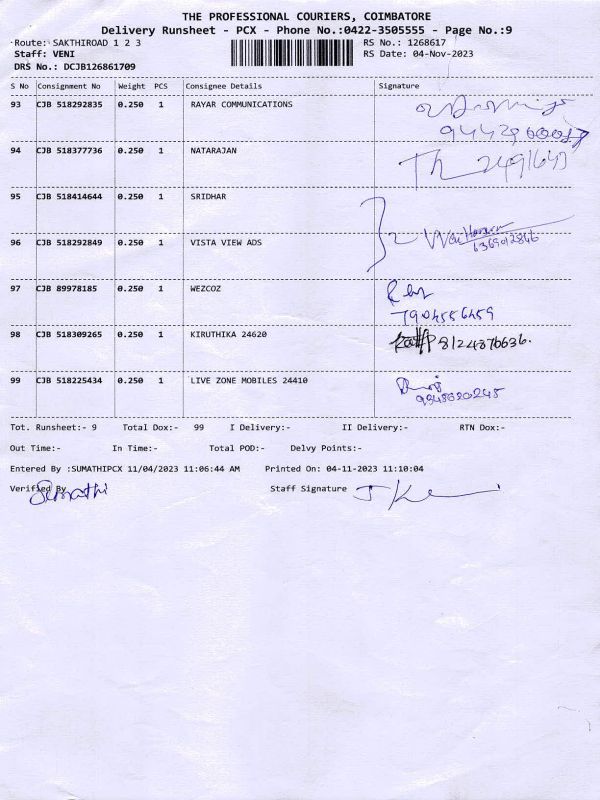 THE PROFESSIONAL COURIERS, COIMBATORE
Delivery Runsheet - PCX - Phone No.:0422-3505555 - Page No.:9
Route: SAKTHIROAD 1 2 3 RS No.: 1268617
Staff: VENI RS Date: 04-Nov-2023
DRS No.: DCJB126861709
S No Consignment No Weight PCS Consignee Details Signature
93 CJB 518292835 0.250 1 RAYAR COMMUNICATIONS
94 CJB 518377736 0.250 1 NATARAJAN
95 CJB 518414644 0.250 1 SRIDHAR
96 CJB 518292849 0.250 1 VISTA VIEW ADS 6369012846
97 CJB 89978185 0.250 1 WEZCOZ
7904556459
98 CJB 518309265 0.250 1 KIRUTHIKA 24620 8124876636.
99 CJB 518225434 0.250 1 LIVE ZONE MOBILES 24410
Tot. Runsheet:- 9 Total Dox:- 99 I Delivery:- II Delivery:- RTN Dox:-
Out Time:- In Time:- Total POD:- Delvy Points:-
Entered By :SUMATHIPCX 11/04/2023 11:06:44 AM Printed On: 04-11-2023 11:10:04
Verified By Sumathi Staff Signature